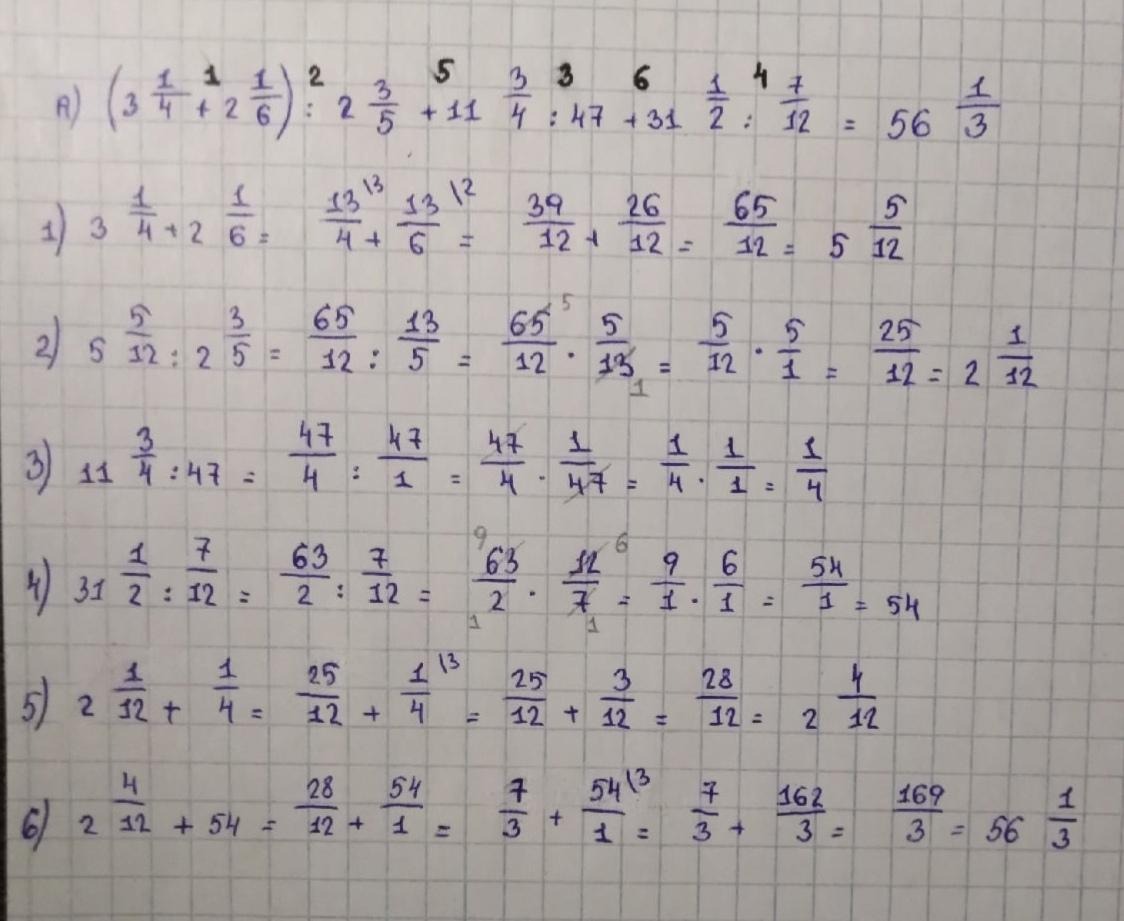 А) (3 1/4 + 2 1/6) : 2 3/5 + 11 3/4 : 47 + 31 1/2 : 7/12 = 56 1/3
1 2 5 3 6 4
1) 3 1/4 + 2 1/6 = 13/4 \3 + 13/6 \2 = 39/12 + 26/12 = 65/12 = 5 5/12
2) 5 5/12 : 2 3/5 = 65/12 : 13/5 = 65/12 5 · 5/13 1 = 5/12 · 5/1 = 25/12 = 2 1/12
3) 11 3/4 : 47 = 47/4 : 47/1 = 47/4 · 1/47 = 1/4 · 1/1 = 1/4
4) 31 1/2 : 7/12 = 63/2 : 7/12 = 9 63/2 1 · 12/7 6 1 = 9/1 · 6/1 = 54/1 = 54
5) 2 1/12 + 1/4 = 25/12 + 1/4 \3 = 25/12 + 3/12 = 28/12 = 2 4/12
6) 2 4/12 + 54 = 28/12 + 54/1 = 7/3 + 54/1 \3 = 7/3 + 162/3 = 169/3 = 56 1/3